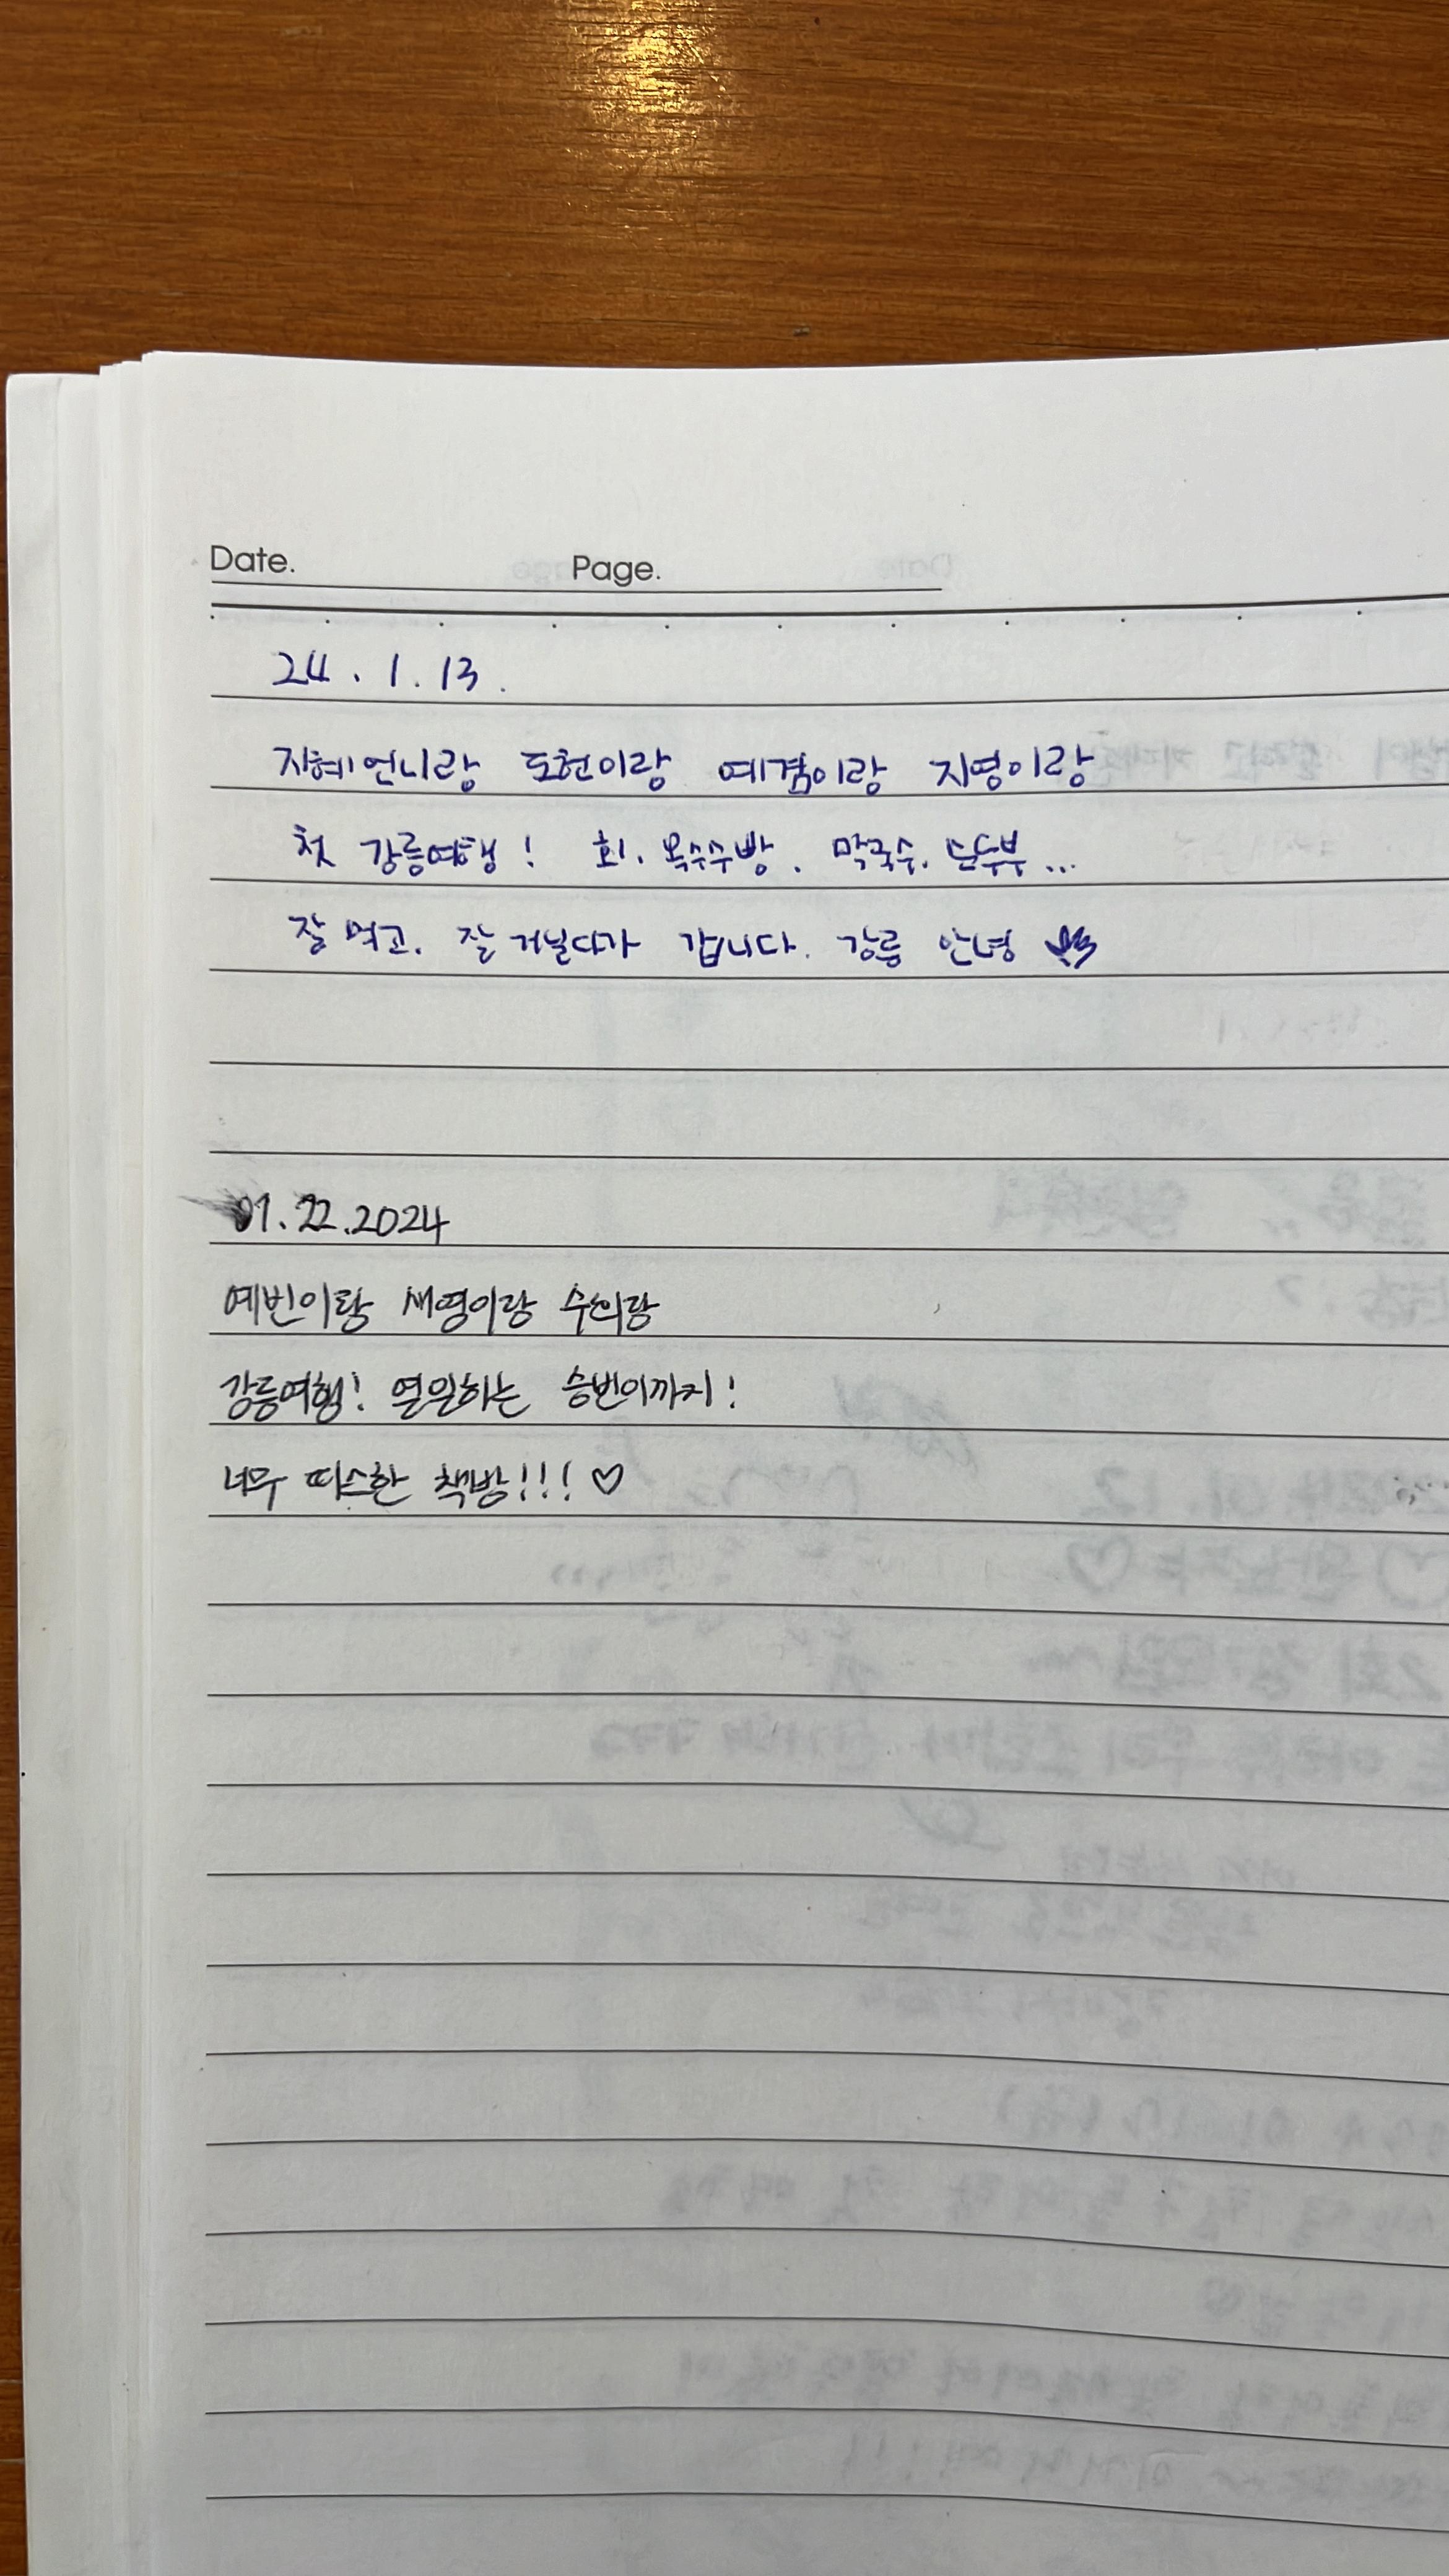 Date. Page.
24. 1. 13.
지혜언니랑 도현이랑 예겸이랑 지영이랑
첫 강릉여행! 회. 옥수수빵. 막국수. 순두부...
잘 먹고. 잘 거닐다가 갑니다. 강릉 안녕
01.22.2024
예빈이랑 새영이랑 수희랑
강릉여행! 열일하는 승빈이까지!
너무 따스한 책방!!! ♡